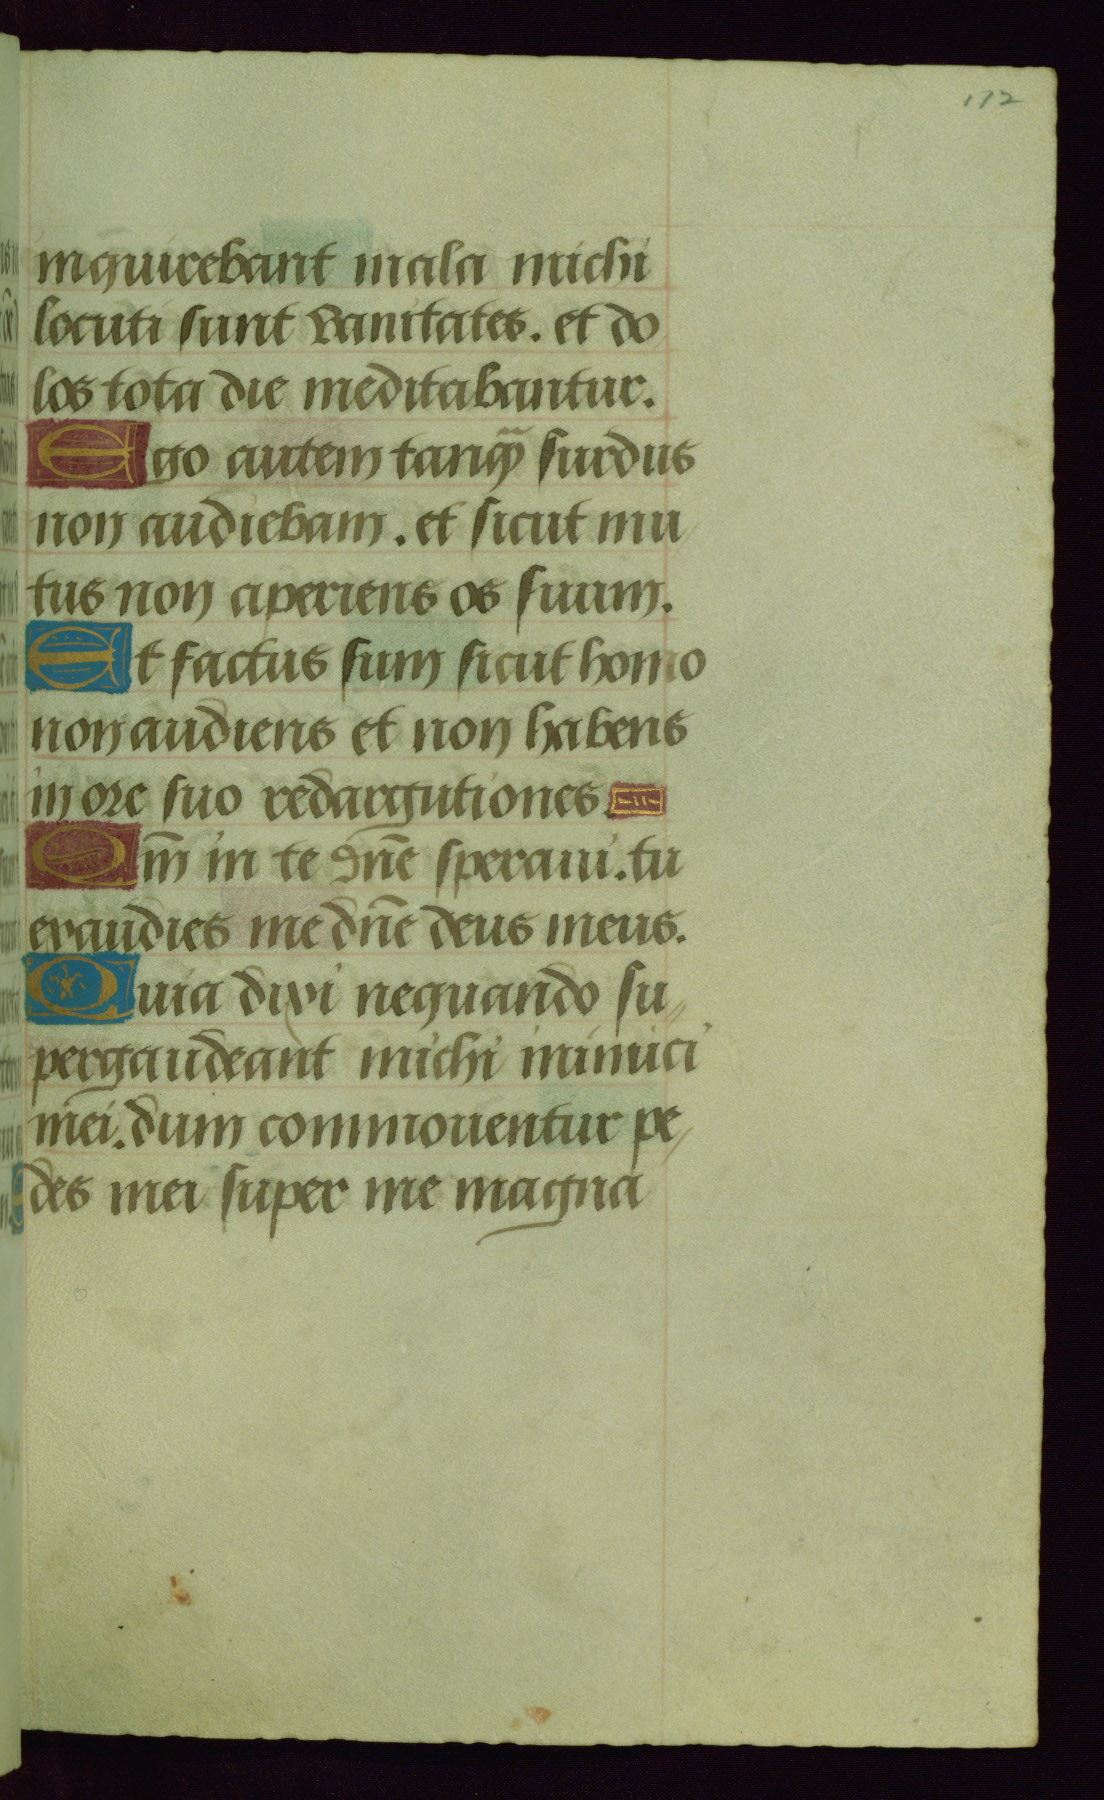 172
inquirebant mala michi
locuti sunt vanitates. et do
los tota die meditabantur.
Ego autem tanq̄ surdus
non audiebam. et sicut mu
tus non aperiens os suum.
Et factus sum sicut homo
non audiens et non habens
in ore suo redargutiones.
Qm̄ in te dn̄e speraui. tu
exaudies me dn̄e deus meus.
Quia dixi nequando su
pergaudeant michi inimici
mei. dum commouentur pe
des mei super me magna